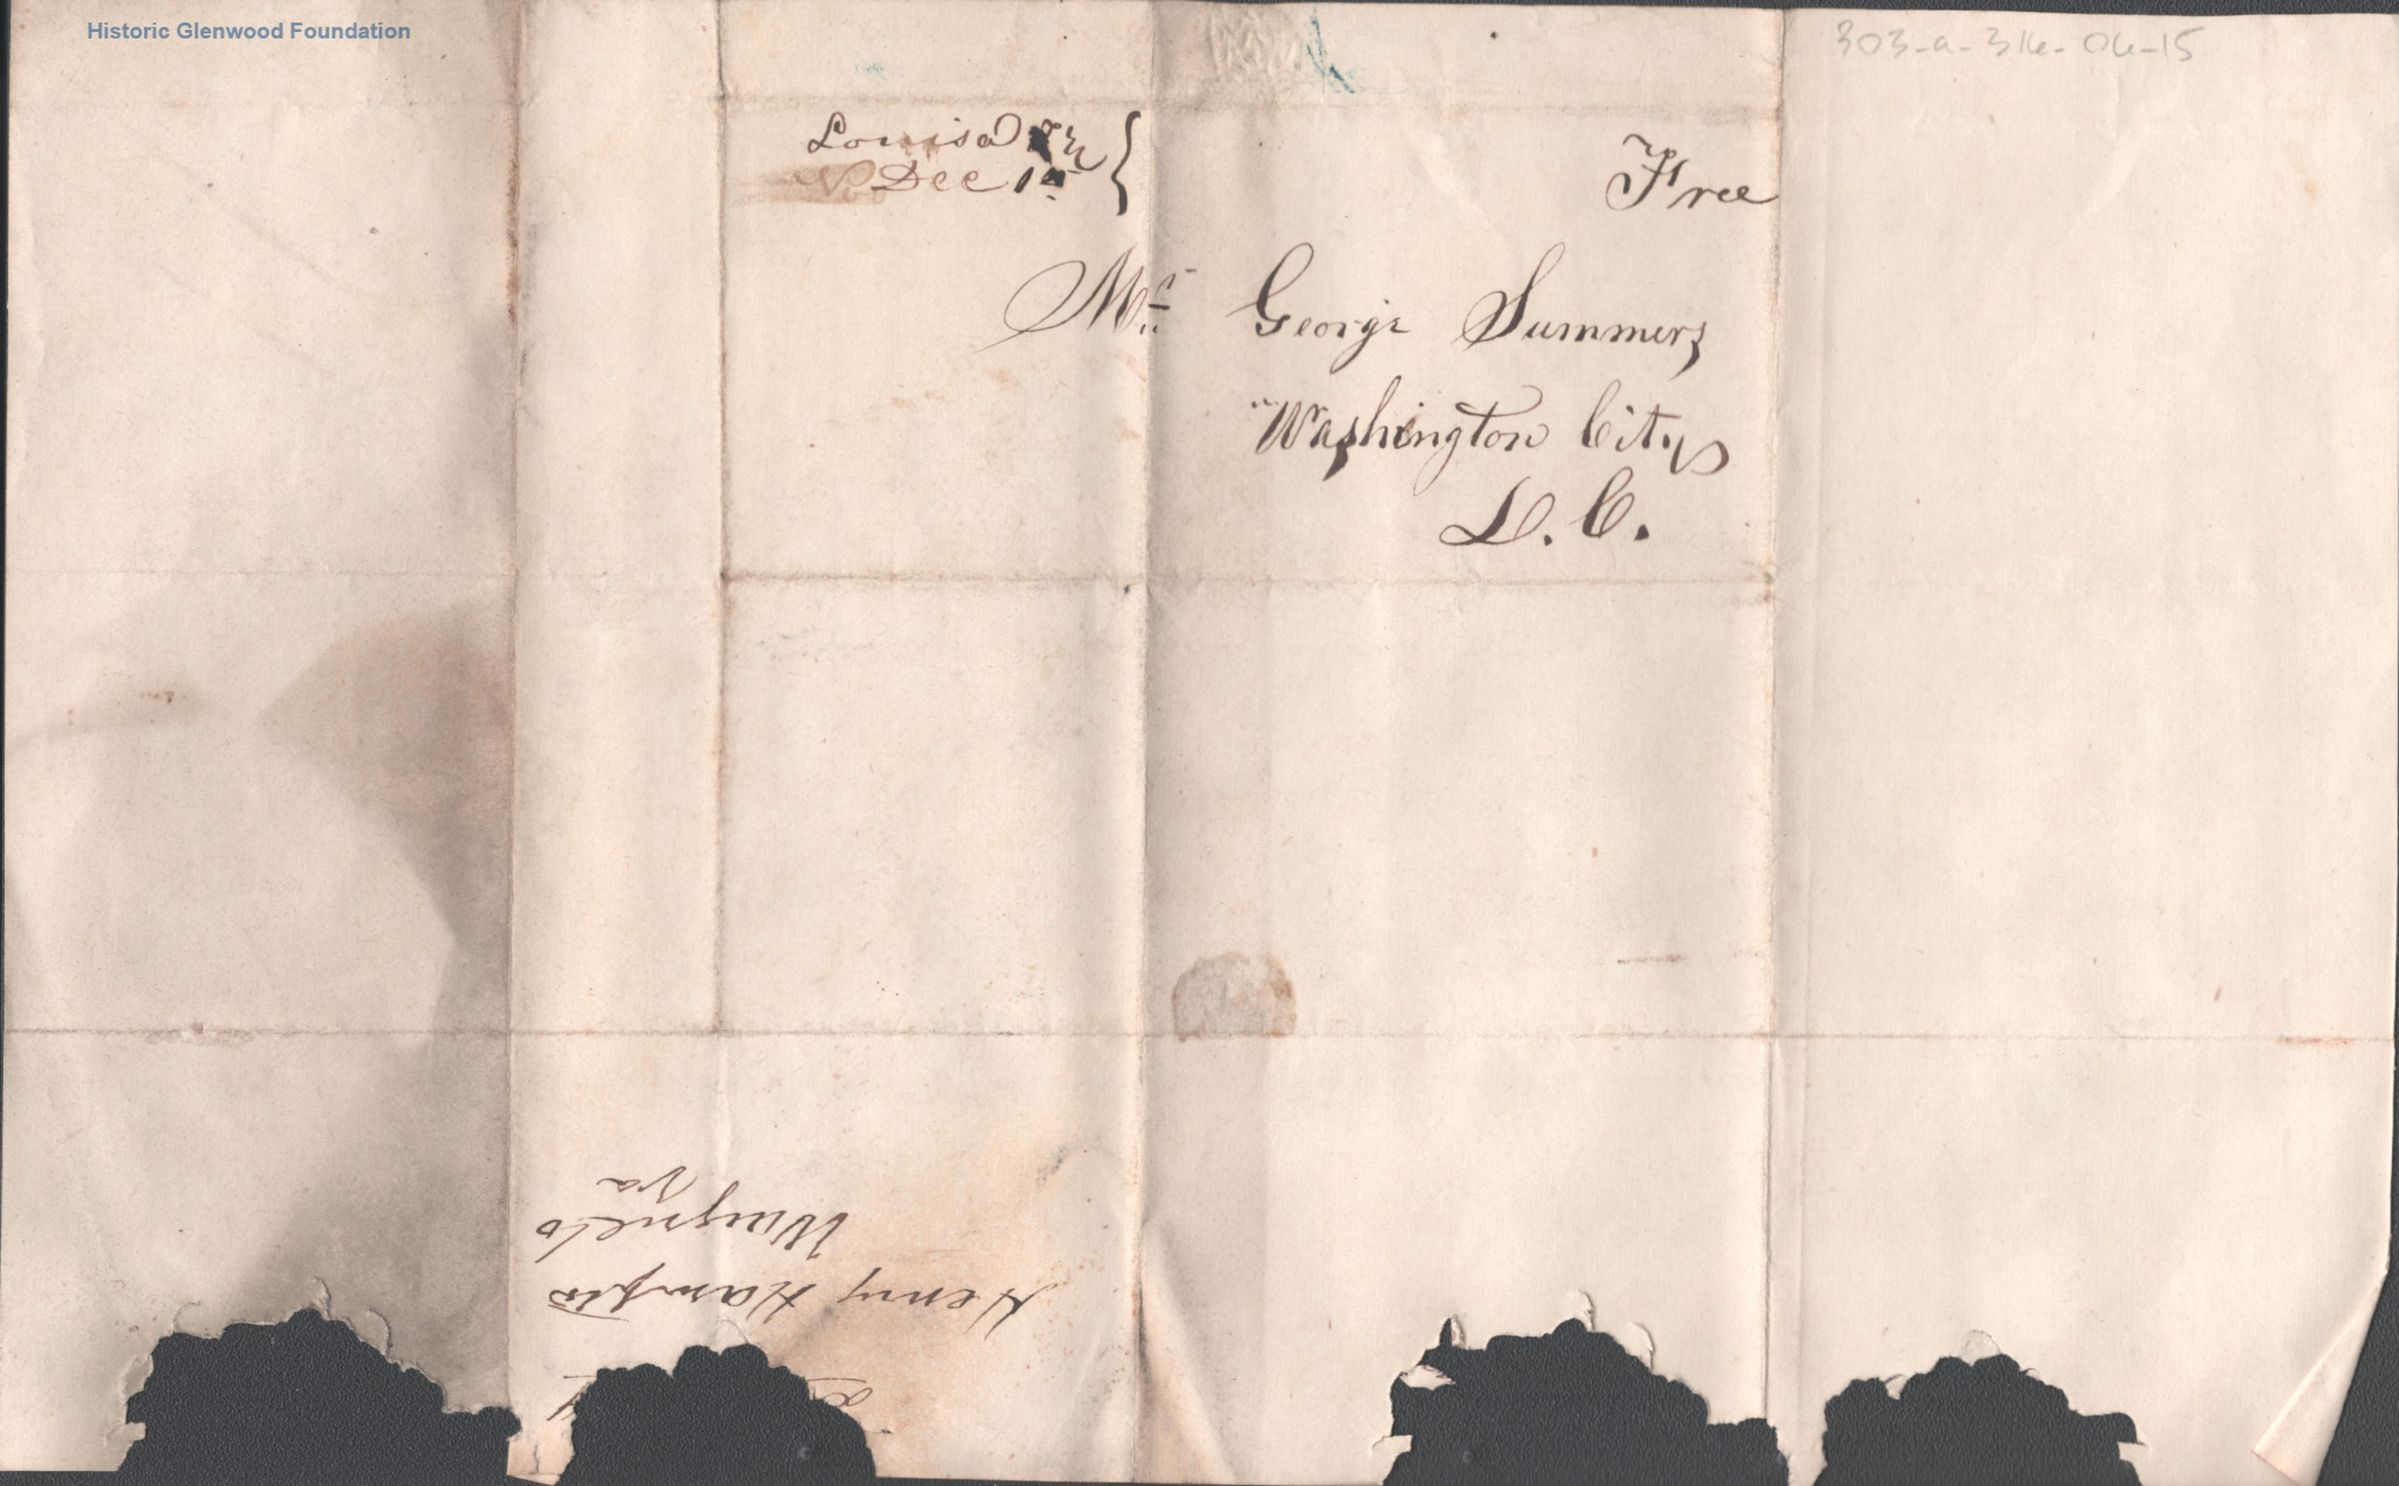 Historic Glenwood Foundation
303-a-314-04-15
Louisa
Dec 1st
Free
Mr George Summers
Washington City
D. C.
Henry Hampton
Wayne Co
Va